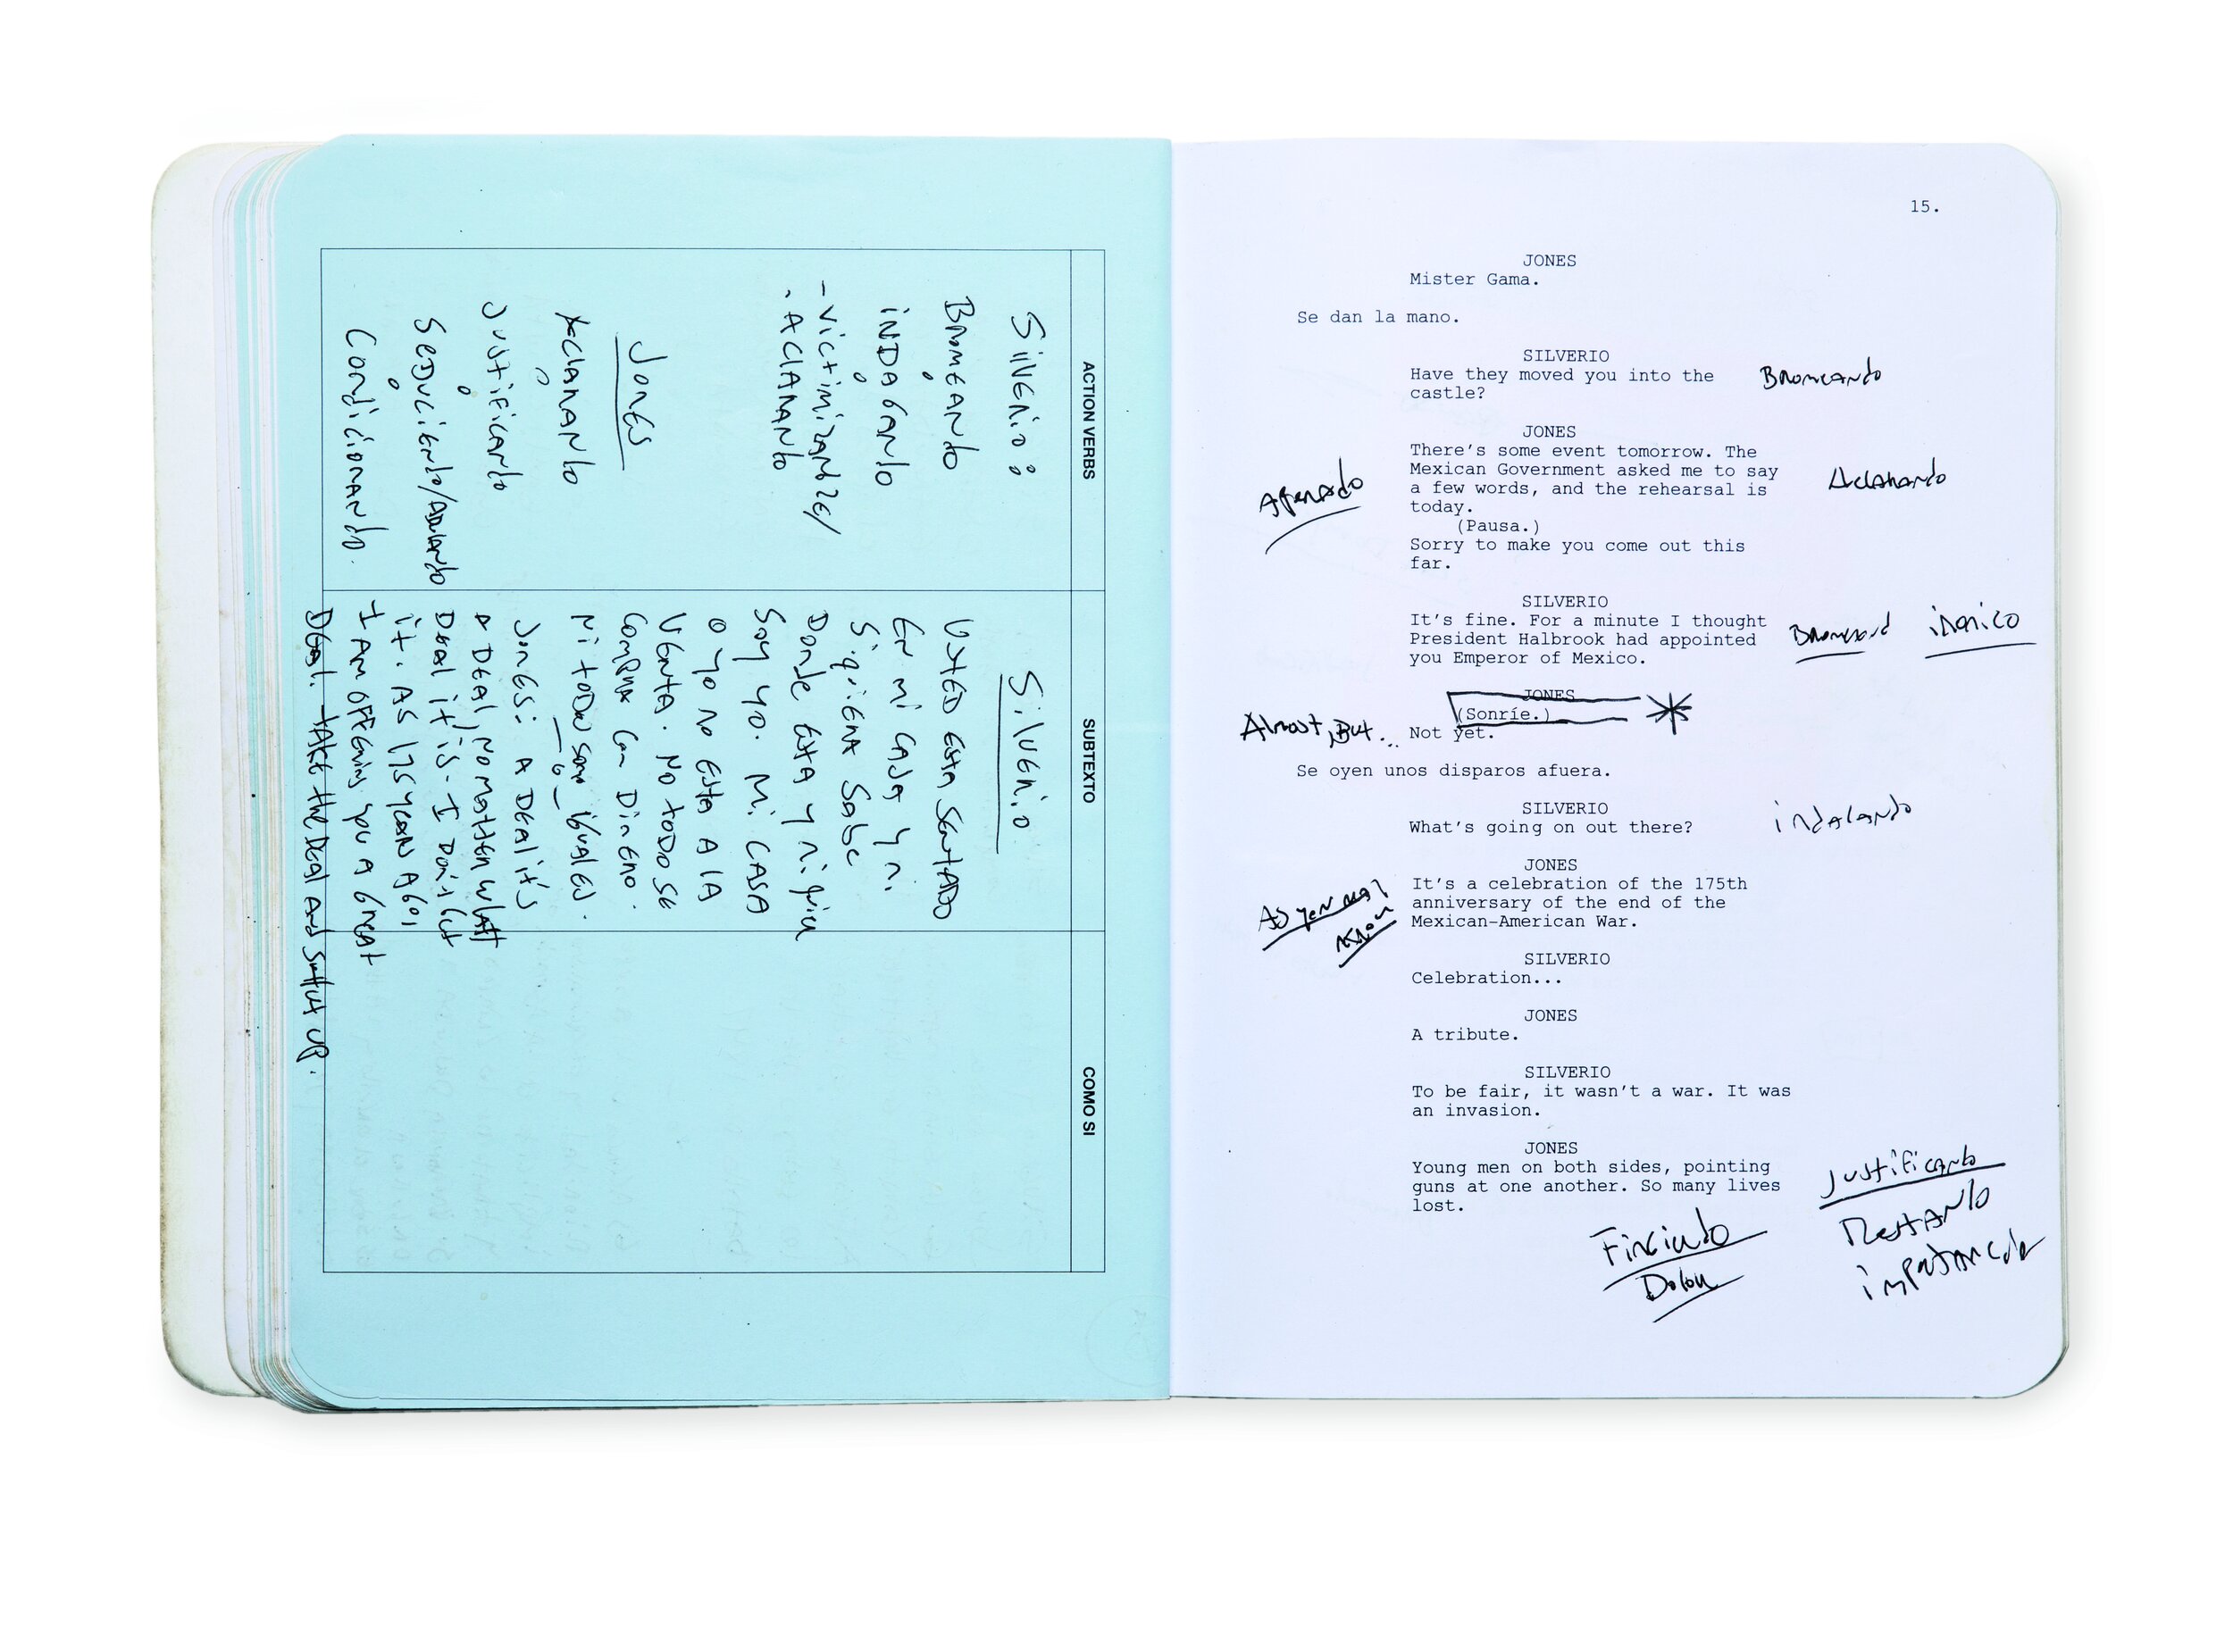 ACTION VERBS
Silverio:
Bromeando
iNDAGANdo
- Victimizandose/
. AClARANdo
Jones
AClARANdo
Justificando
Seduciendo/Adulando
Condicionando.
SUBTEXTO
Silverio
Usted esta sentado
En mi casa y ni
Siquiera sabe
Donde esta y ni quien
Soy yo. Mi CASA
o yo no esta a la
Venta. No todo se
Compra con Dinero.
Ni todos somos iguales.
Jones: A Deal it's
A DEAL, no matter what
Deal it is. I Don't
it. AS 175 years AGO,
I AM OFFering you A Great
Deal. take the Deal and Shut up.
COMO SI
15.
JONES
Mister Gama.
Se dan la mano.
SILVERIO
Have they moved you into the Bromeando
castle?
JONES
There's some event tomorrow. The
Mexican Government asked me to say
Apenado a few words, and the rehearsal is Aclarando
today.
(Pausa.)
Sorry to make you come out this
far.
SILVERIO
It's fine. For a minute I thought
President Halbrook had appointed Bromeand ironico
you Emperor of Mexico.
JONES
(Sonríe.)
Almost, But... Not yet.
Se oyen unos disparos afuera.
SILVERIO
What's going on out there? indagando
JONES
It's a celebration of the 175th
As you may anniversary of the end of the
know Mexican-American War.
SILVERIO
Celebration...
JONES
A tribute.
SILVERIO
To be fair, it wasn't a war. It was
an invasion.
JONES
Young men on both sides, pointing Justificando
guns at one another. So many lives
lost.
Restando
Fingiendo
importancia
Dolor